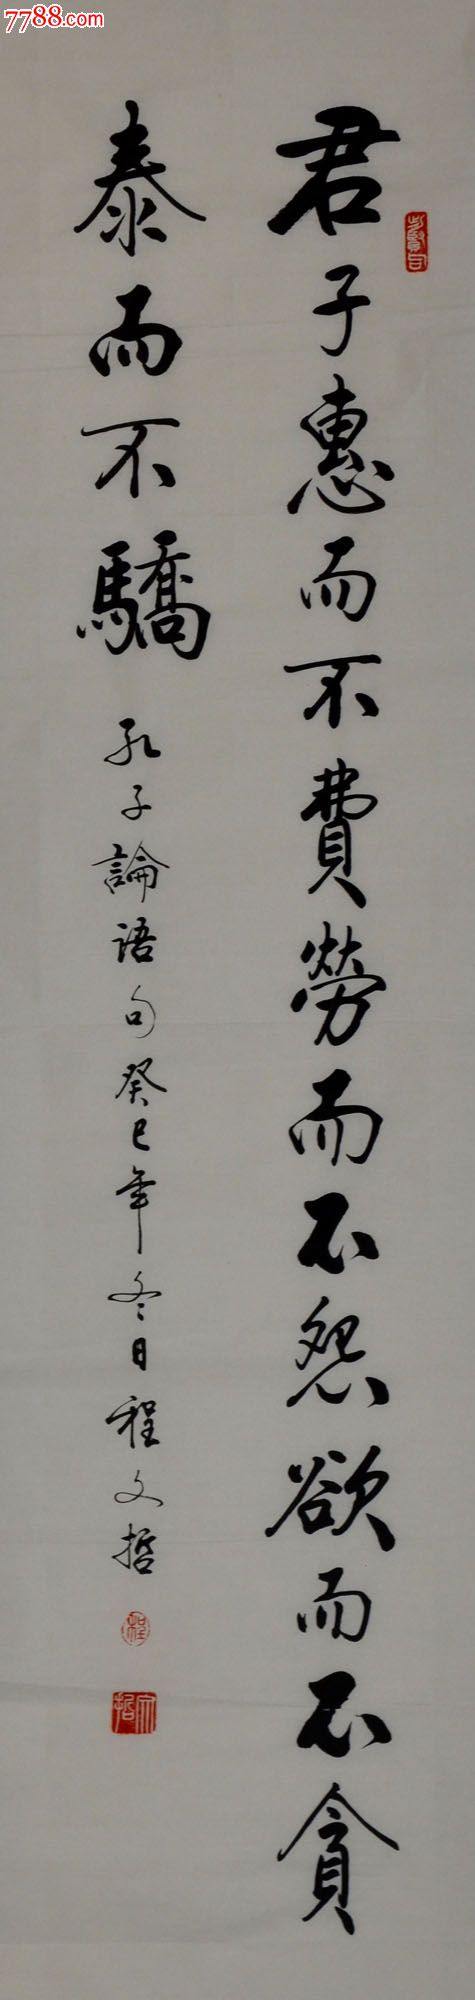 7788.com
君子惠而不費勞而不怨欲而不貪
泰而不驕
孔子論语句癸巳年冬日程文哲
程
文哲